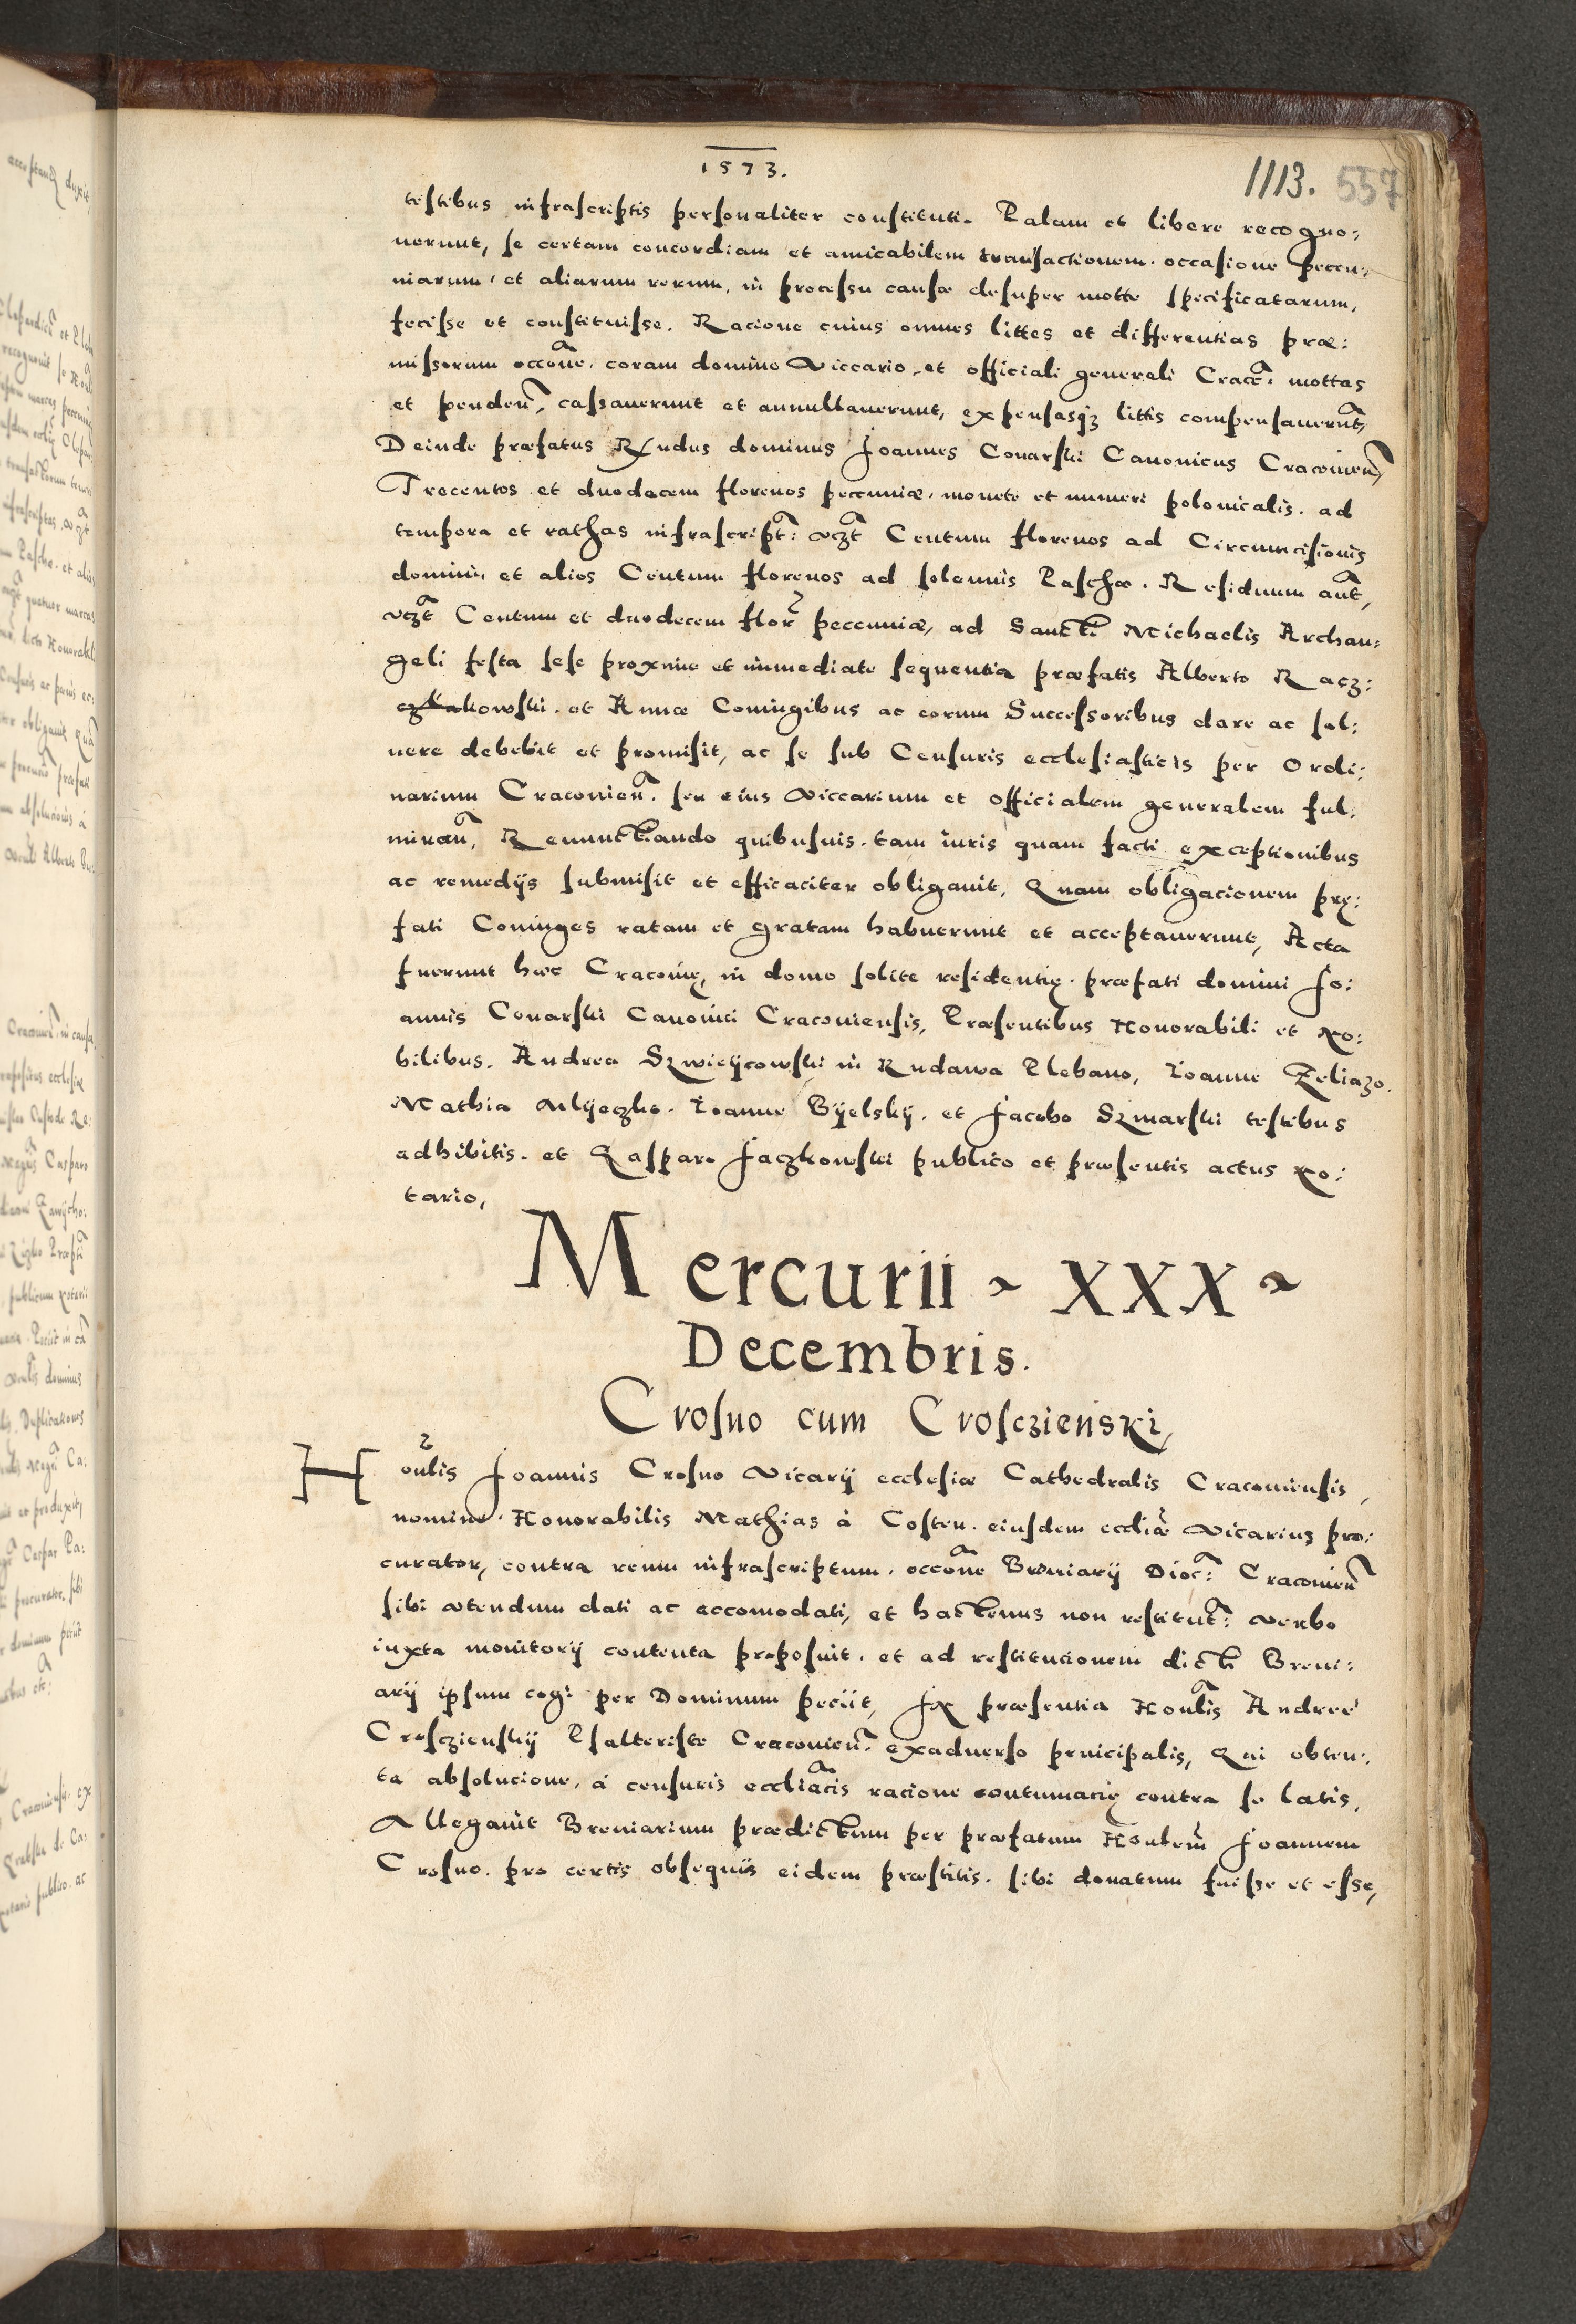 1573.
1113. 557
testibus infrascriptis personaliter constituti. Palam et libere recogno:
uerunt, se certam concordiam et amicabilem transactionem. occasione peccu:
niarum. et aliarum rerum, in processu causæ desuper motte specificatarum,
fecisse et constituisse. Racione cuius omnes littes et differentias præ:
missorum occone. coram domino Viccario et officiali generali Cracoe: mottas
et penden, cassauerunt et annullauerunt, expensasqz littis compensauerunt,
Deinde præfatus Rndus dominus Joannes Conarski Canonicus Cracouien,
Trecentos et duodecem florenos peccuniæ. monete et numeri polonicalis. ad
tempora et rathas infrascript: vczt Centum florenos ad Circumcisionis
domini, et alios Centum florenos ad solennis Paschæ. Residuum aut,
vczt Centum et duodecem flor peccuniæ, ad Sancti Michaelis Archan:
geli festa sese proxime et immediate sequentia præfatis Alberto Racz:
kowski. et Annæ Coniugibus ac eorum Successoribus dare ac sol:
uere debebit et promisit, ac se sub Censuris ecclesiasticis per Ordi:
narium Cracouien. seu eius Viccarium et officialem generalem ful:
minan, Renunctiando quibusuis. tam iuris quam facti exceptionibus
ac remedijs submisit et efficaciter obligauit, Quam obligacionem prę:
fati Coniuges ratam et gratam habuerunt et acceptauerunt, Acta
fuerunt hæc Cracouię, in domo solite residentię. præfati domini Jo:
annis Conarski Canonici Cracouiensis, Præsentibus Honorabili et No:
bilibus. Andrea Szwieijcowski in Rudawa Plebano, Ioanne Zeliazo.
Mathia Mlijeczko. Ioanne Bijelskij. et Jacobo Szmarski testibus
adhibitis. et Gasparo Jaczkowski publico et præsentis actus No:
tario,
Mercurii ~ XXX ~
Decembris.
Crosno cum Crosczienski,
Honlis Joannis Crosno Vicarij ecclesiæ Cathedralis Cracouiensis,
nomine. Honorabilis Mathias à Costen. eiusdem eccliæ Vicarius pro:
curator, contra reum infrascriptum. occone Breuiarij Dioc: Cracouien
sibi vtendum dati ac accomodati, et hactenus non restitut: verbo
iuxta monitorij contenta proposuit. et ad restitucionem dicti Breui:
arij ipsum cogi per Dominum peciit, In præsentia Honlis Andreę
Crosczienskij Psalteriste Cracouien. exaduerso principalis, Qui obten:
ta absolucione. á censuris eccliacis racione contumacię contra se latis,
Allegauit Breuiarium prædictum per præfatum Honlem Joannem
Crosno. pro certis obsequiis eidem præstitis. sibi donatum fuisse et esse,